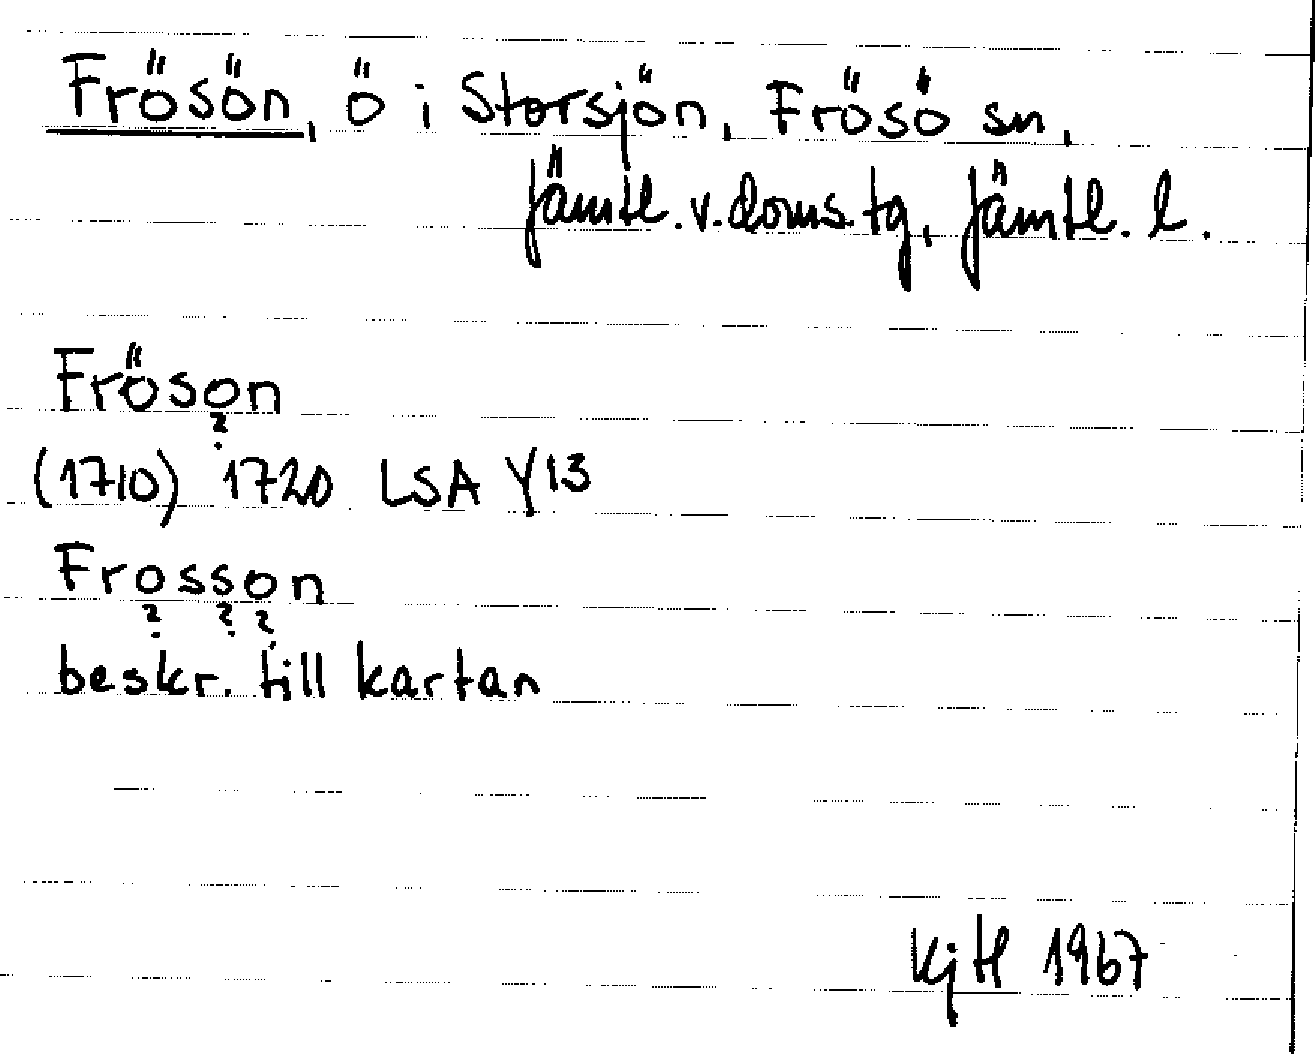 Frösön, ö i Storsjön, Frösö sn,
Jämtl. v. doms. tg, Jämtl. l.
Fröson
?
(1710) 1720 LSA Y13
Frosson
? ? ?
beskr. till kartan
KjH 1967